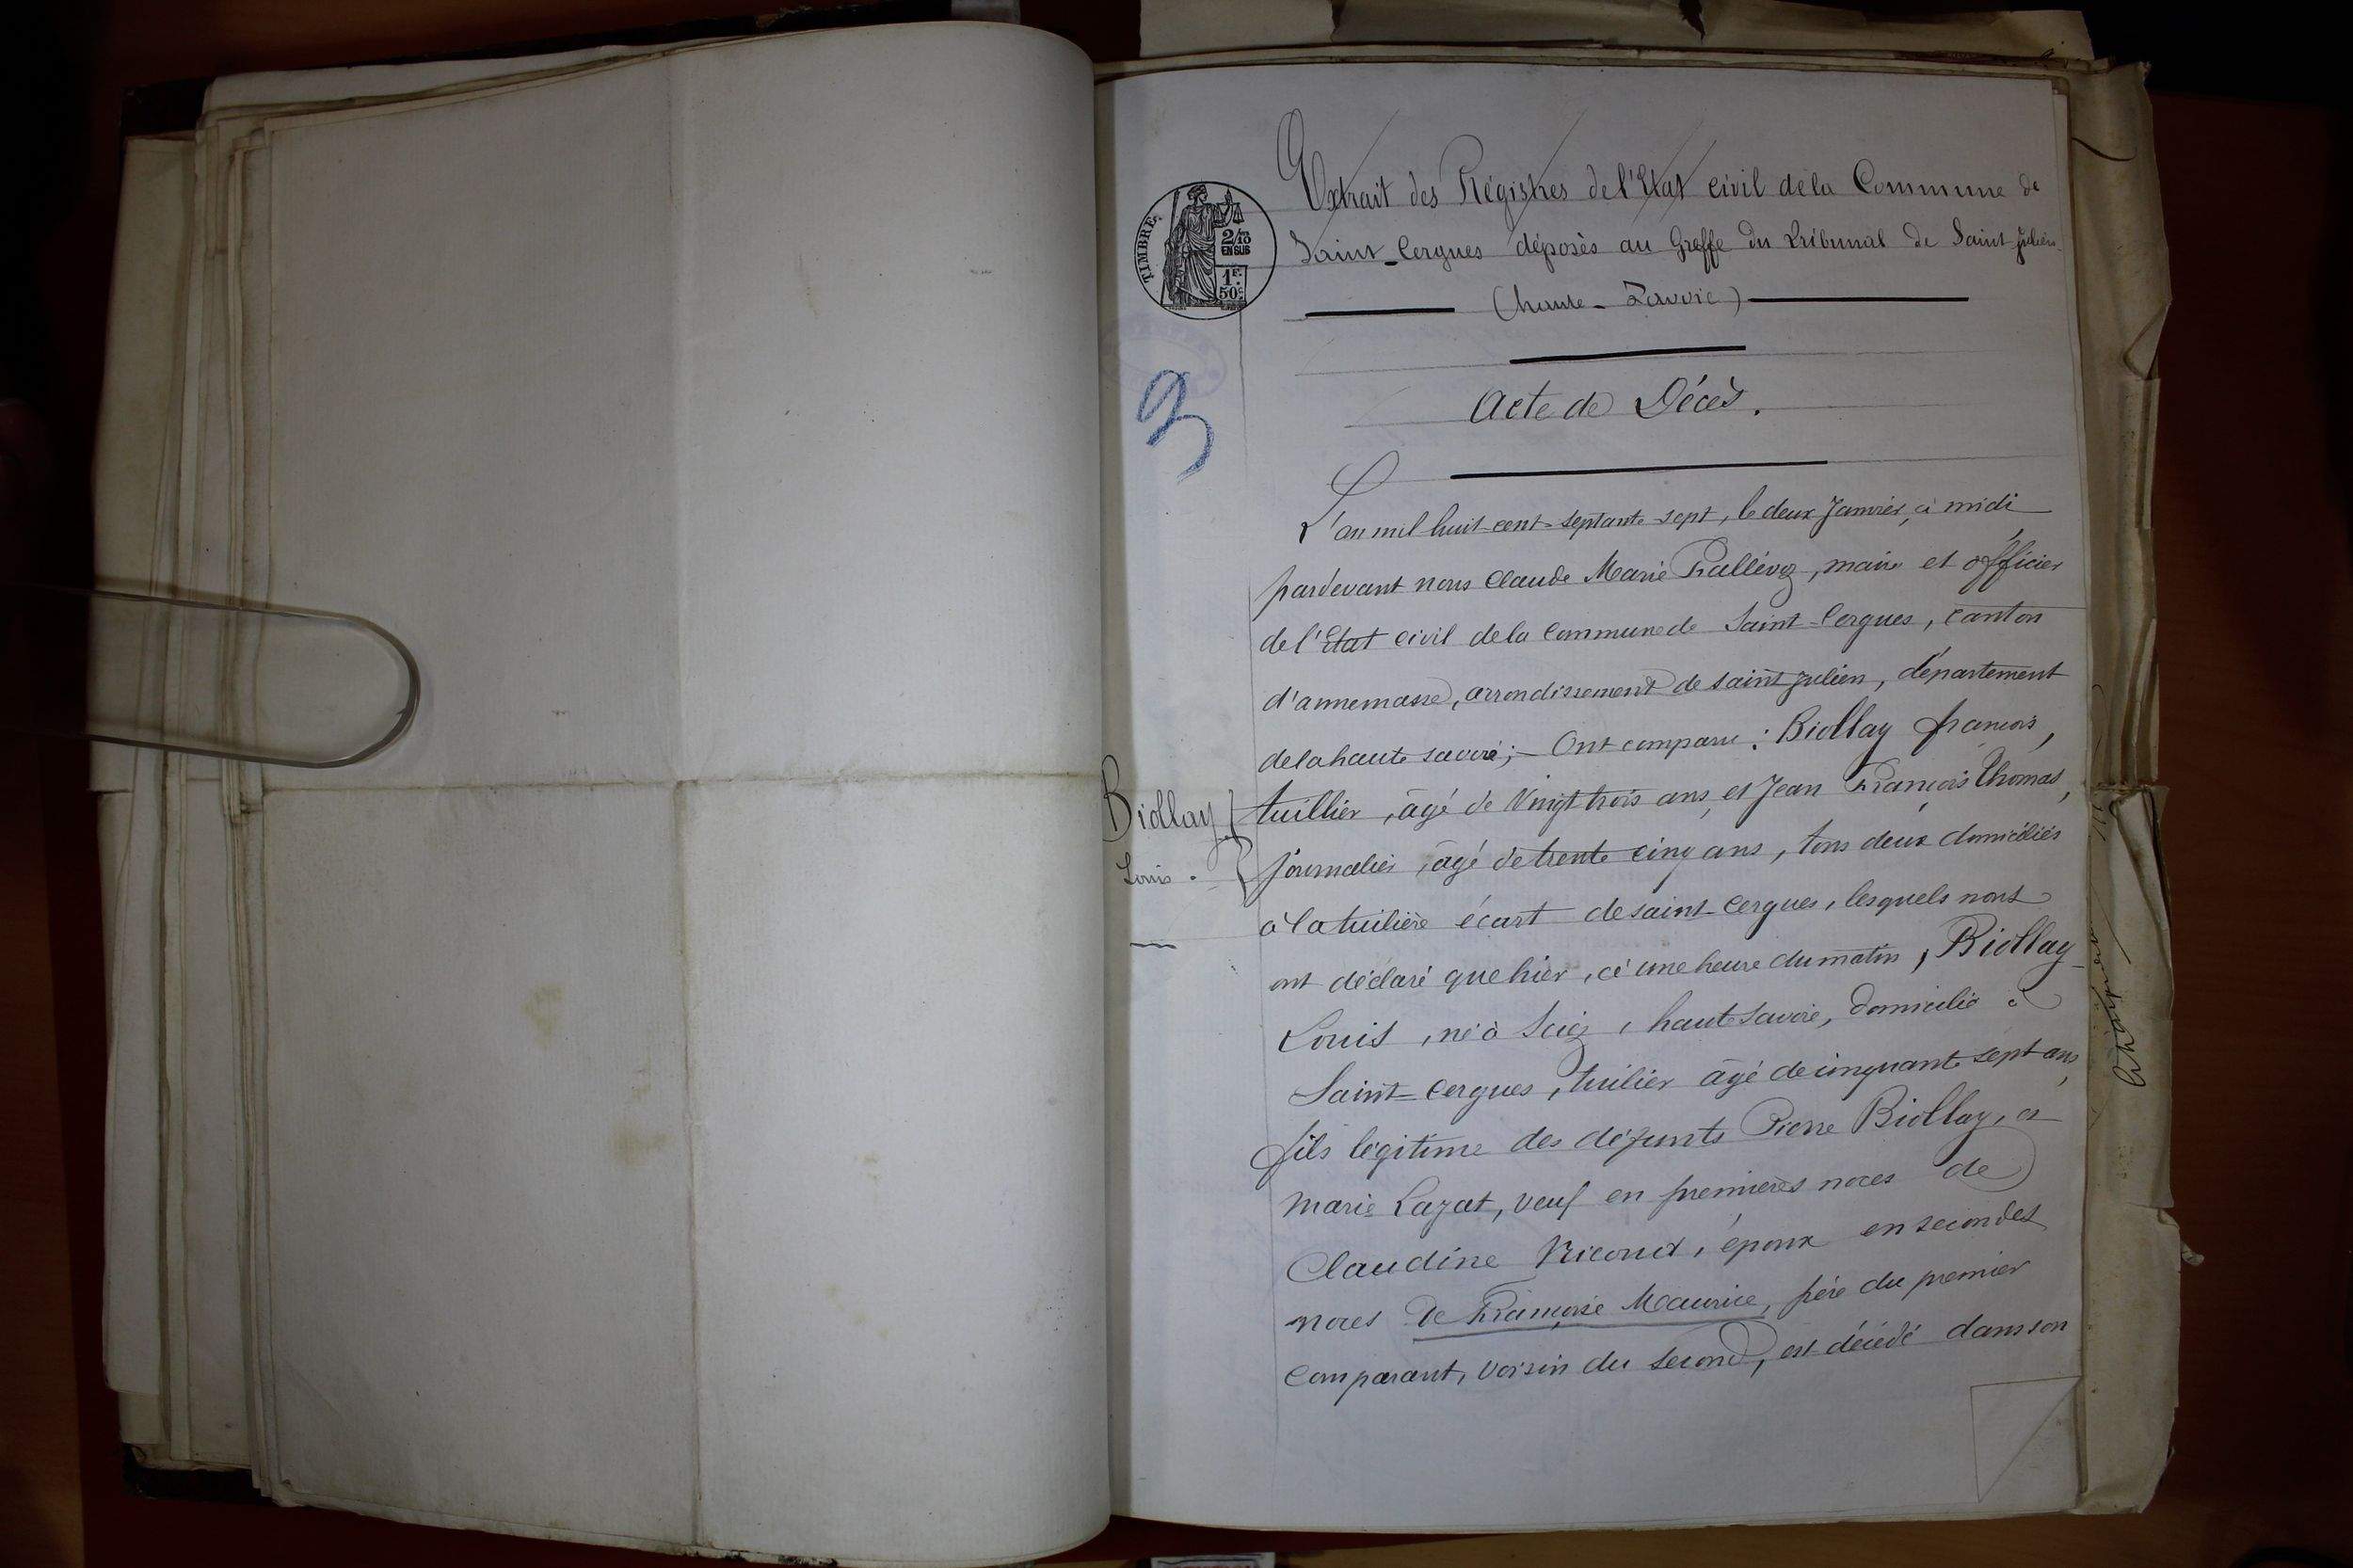 Extrait des Régistres de l'Etat civil de la Commune de
Saint-Cergues déposés au Greffe du Tribunal de Saint Julien
(haute-Savoie)
TIMBRE
2/10
EN SUS
1F.
50c
Acte de Décès.
L'an mil huit cent septante sept, le deux Janvier, à midi
pardevant nous Claude Marie, maire et officier
de l'Etat civil de la Commune de Saint-Cergues, canton
d'annemasse, arrondissement de saint julien, département
de la haute savoie; - Ont comparu : Biollay françois,
Biollay
Louis.
tuillier, âgé de Vingt trois ans, et Jean François Thomas,
journalier, âgé de trente cinq ans, tous deux domiciliés
à la tuilière écart de saint-Cergues, lesquels nous
ont déclaré que hier, à une heure du matin, Biollay
Louis, né à Sciez, haute savoie, domicilié à
Saint-Cergues, tuilier âgé de cinquante sept ans,
fils légitime des défunts Pierre Biollay, et
marie, veuf en premières noces de
Claudine, époux en secondes
noces de Françoise Maurice, père du premier
Comparant, voisin du second, est décédé dans son